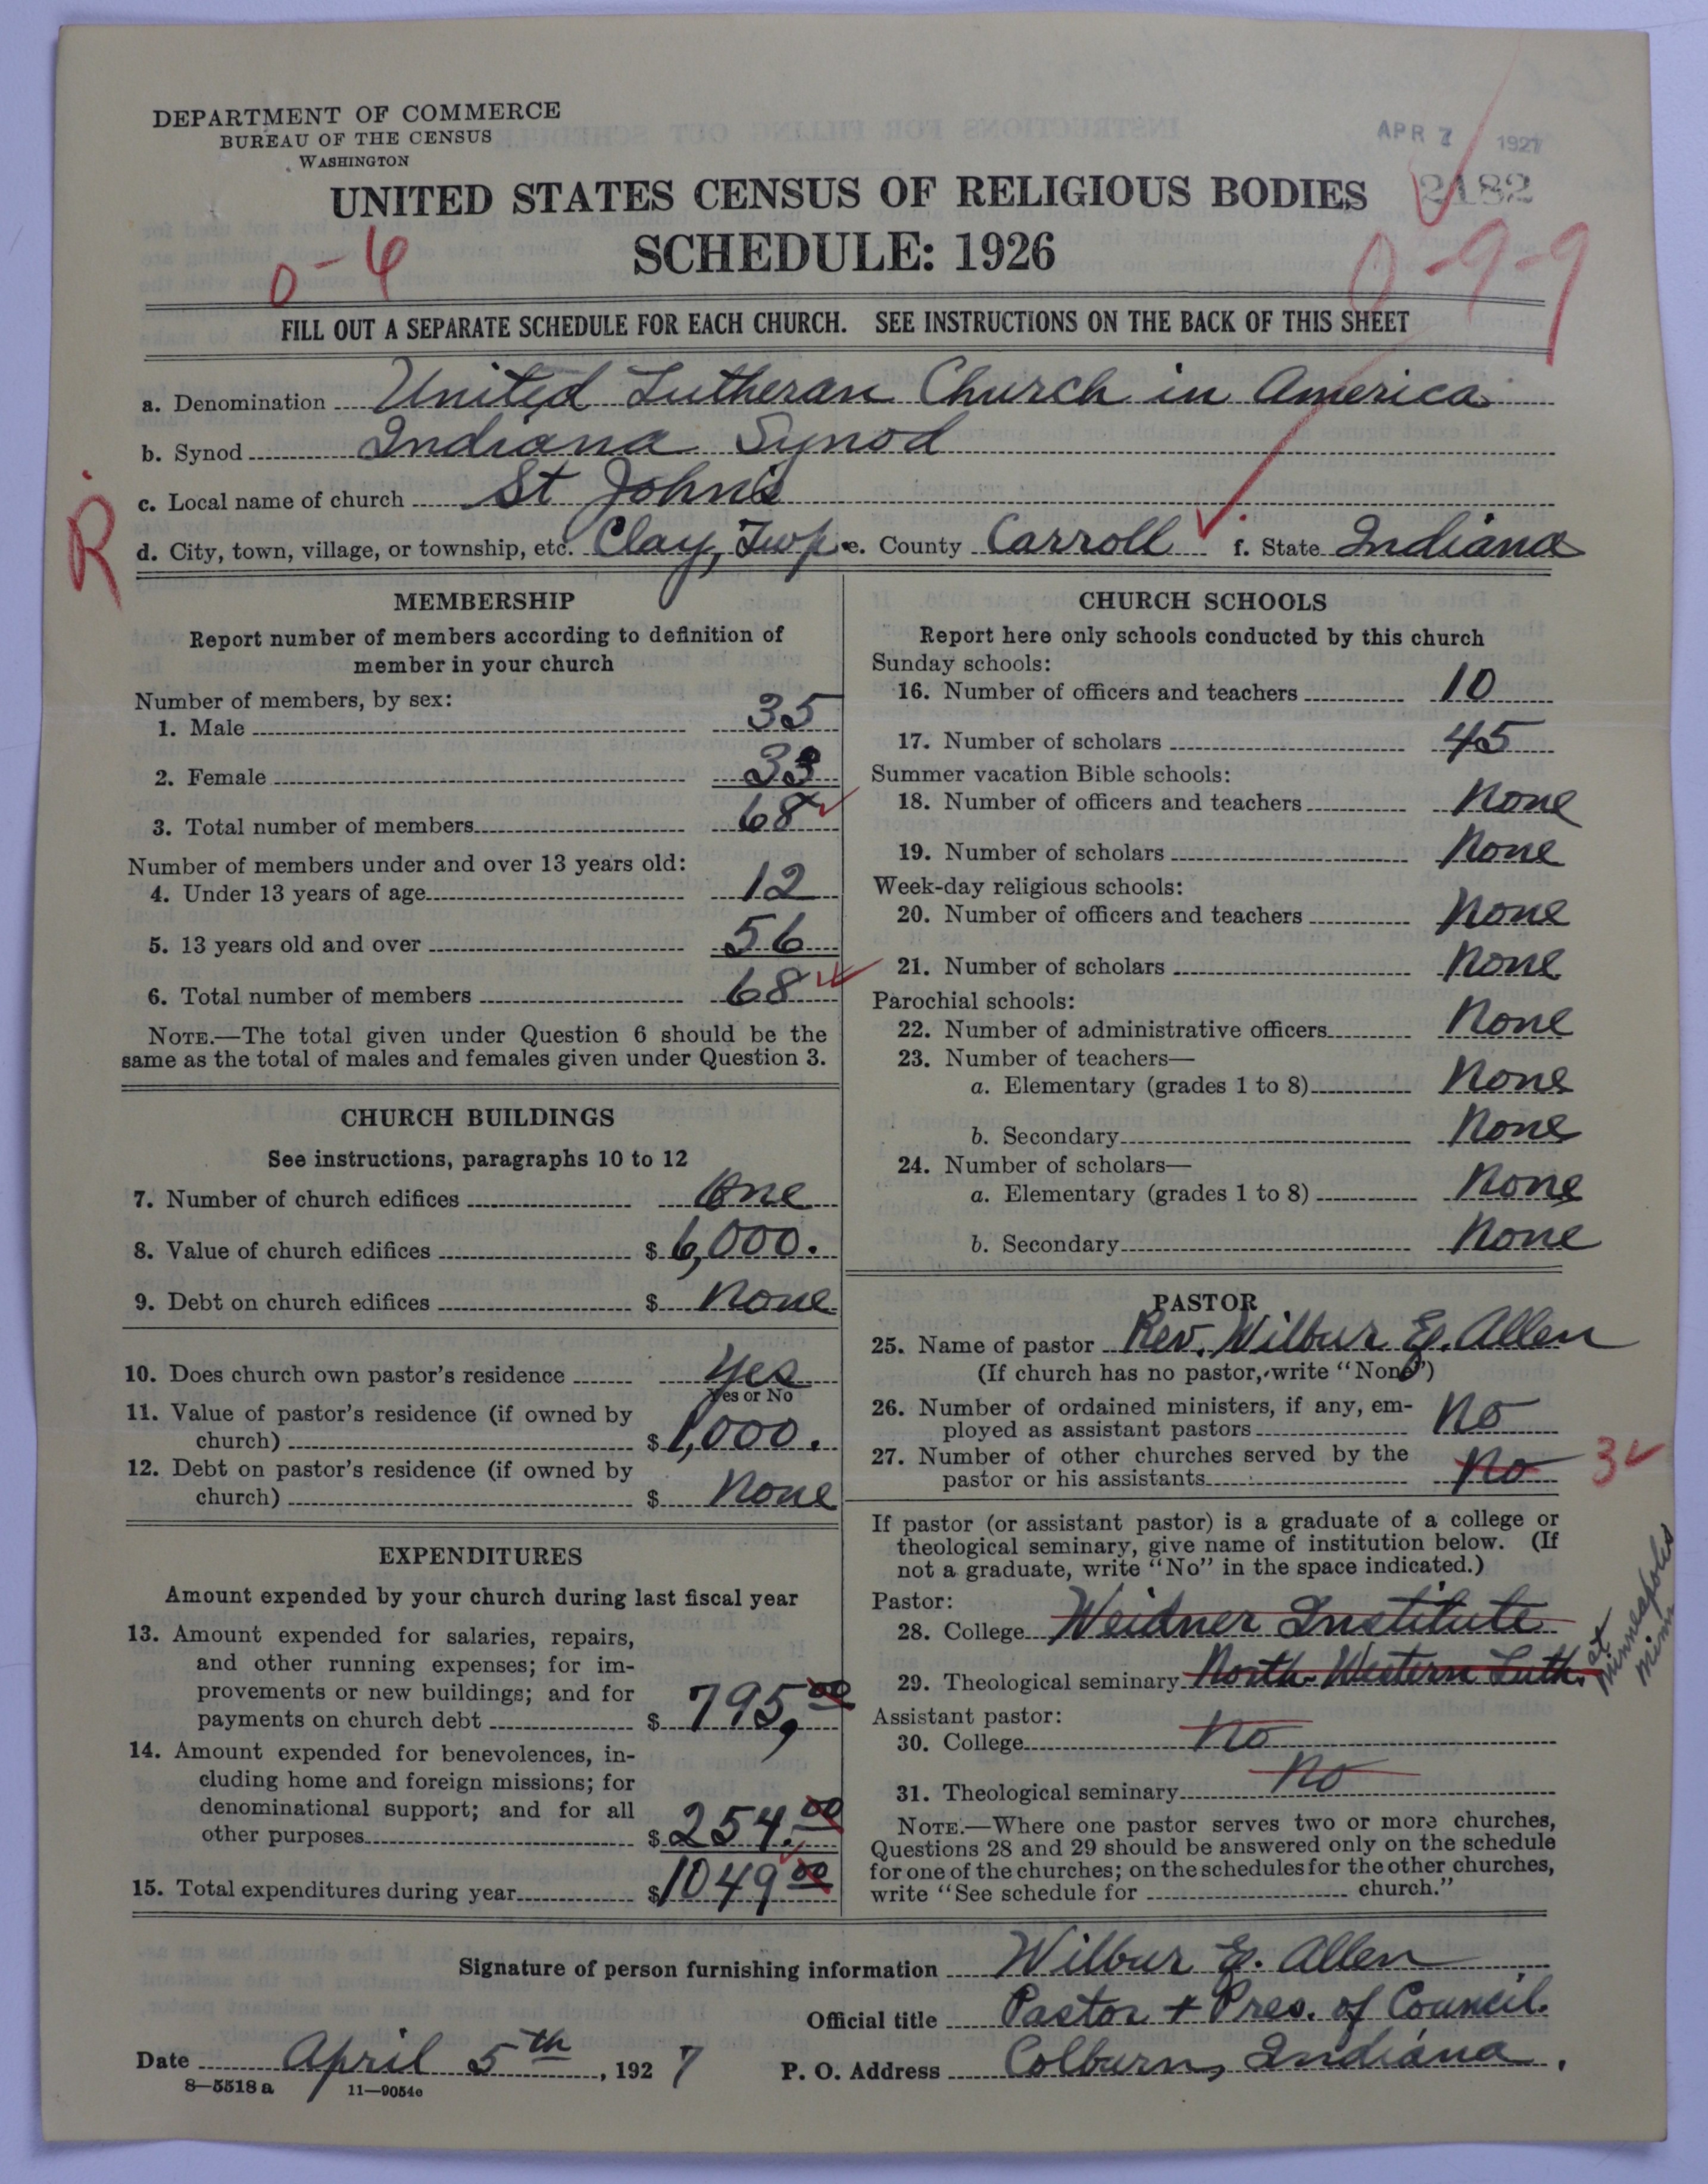 DEPARTMENT OF COMMERCE
BUREAU OF THE CENSUS
WASHINGTON
APR 7 1927
2182
UNITED STATES CENSUS OF RELIGIOUS BODIES
SCHEDULE: 1926
0-6
0-9-9
FILL OUT A SEPARATE SCHEDULE FOR EACH CHURCH. SEE INSTRUCTIONS ON THE BACK OF THIS SHEET
a. Denomination United Lutheran Church in America
b. Synod Indiana Synod
c. Local name of church St John's
R
d. City, town, village, or township, etc. Clay, Twp. e. County Carroll f. State Indiana
MEMBERSHIP
Report number of members according to definition of
member in your church
Number of members, by sex:
1. Male 35
2. Female 33
3. Total number of members 68
Number of members under and over 13 years old:
4. Under 13 years of age 12
5. 13 years old and over 56
6. Total number of members 68
NOTE.—The total given under Question 6 should be the
same as the total of males and females given under Question 3.
CHURCH BUILDINGS
See instructions, paragraphs 10 to 12
7. Number of church edifices One
8. Value of church edifices $ 6,000.
9. Debt on church edifices $ None
10. Does church own pastor's residence Yes
Yes or No
11. Value of pastor's residence (if owned by
church) $ 1,000.
12. Debt on pastor's residence (if owned by
church) $ None
EXPENDITURES
Amount expended by your church during last fiscal year
13. Amount expended for salaries, repairs,
and other running expenses; for im-
provements or new buildings; and for
payments on church debt $ 795,00
14. Amount expended for benevolences, in-
cluding home and foreign missions; for
denominational support; and for all
other purposes $ 254.00
15. Total expenditures during year $ 1049 00
CHURCH SCHOOLS
Report here only schools conducted by this church
Sunday schools:
16. Number of officers and teachers 10
17. Number of scholars 45
Summer vacation Bible schools:
18. Number of officers and teachers None
19. Number of scholars None
Week-day religious schools:
20. Number of officers and teachers None
21. Number of scholars None
Parochial schools:
22. Number of administrative officers None
23. Number of teachers—
a. Elementary (grades 1 to 8) None
b. Secondary None
24. Number of scholars—
a. Elementary (grades 1 to 8) None
b. Secondary None
PASTOR
25. Name of pastor Rev. Wilbur E. Allen
(If church has no pastor, write "None")
26. Number of ordained ministers, if any, em-
ployed as assistant pastors No
27. Number of other churches served by the
pastor or his assistants No 3
If pastor (or assistant pastor) is a graduate of a college or
theological seminary, give name of institution below. (If
not a graduate, write "No" in the space indicated.)
Pastor:
28. College Weidner Institute
29. Theological seminary North-Western Luth.
at
Minneapolis
Minn
Assistant pastor:
30. College No
31. Theological seminary No
NOTE.—Where one pastor serves two or more churches,
Questions 28 and 29 should be answered only on the schedule
for one of the churches; on the schedules for the other churches,
write "See schedule for church."
Signature of person furnishing information Wilbur E. Allen
Official title Pastor + Pres. of Council.
Date April 5th, 1927 P. O. Address Colburn, Indiana.
8—5518 a 11—9054c